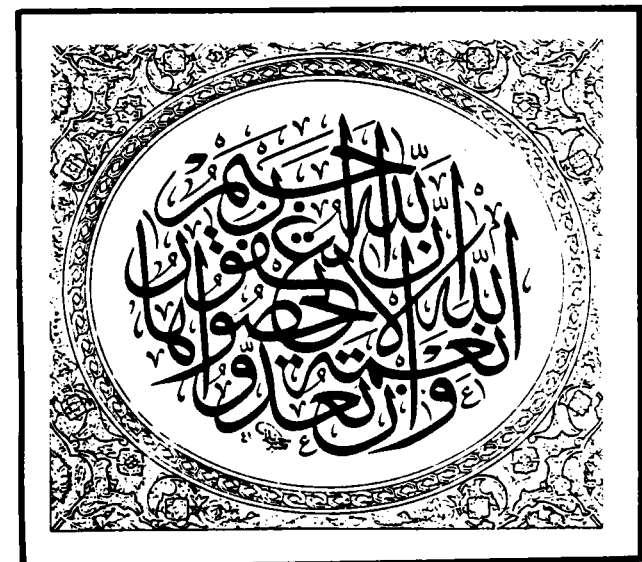 وَإِنْ تَعُدُّوا نِعْمَةَ اللّٰهِ لَا تُحْصُوهَا إِنَّ اللّٰهَ لَغَفُورٌ رَحِيمٌ